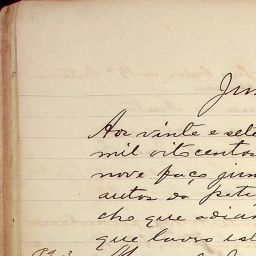 Jun
Aos vinte e sete
mil oitocentos
nove faço jun
autos da peti
cho que adian
que lavro est